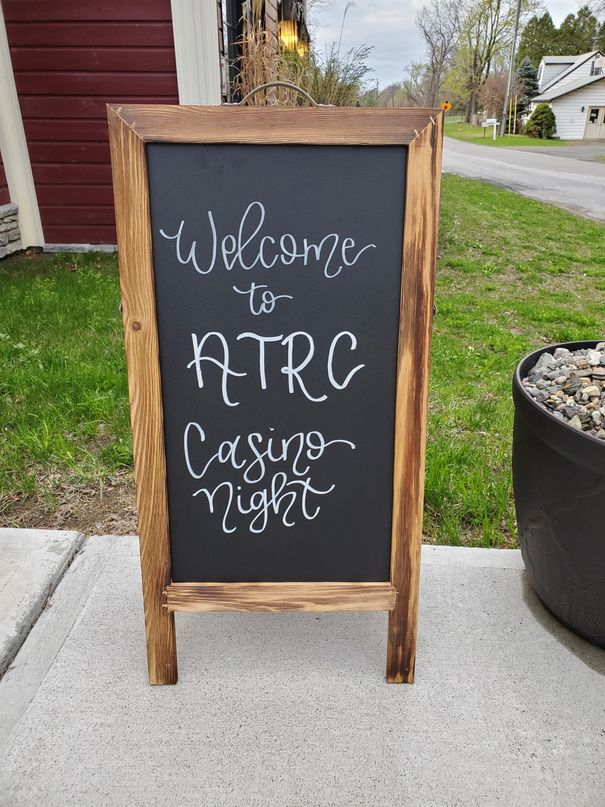 Welcome
to
ATRC
Casino
night